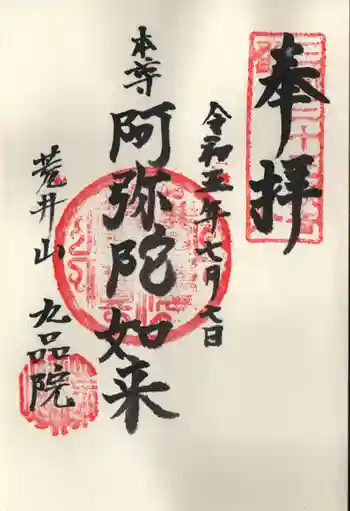 奉拝
令和五年七月六日
本尊
阿弥陀如来
荒井山
九品院